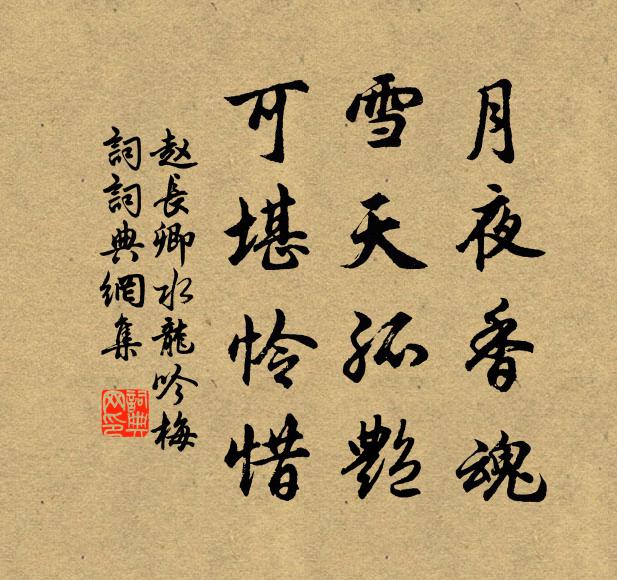 月夜香魂
雪天孤艷
可堪怜惜
赵長卿水龍吟梅
詞詞典網集
詞典
网印